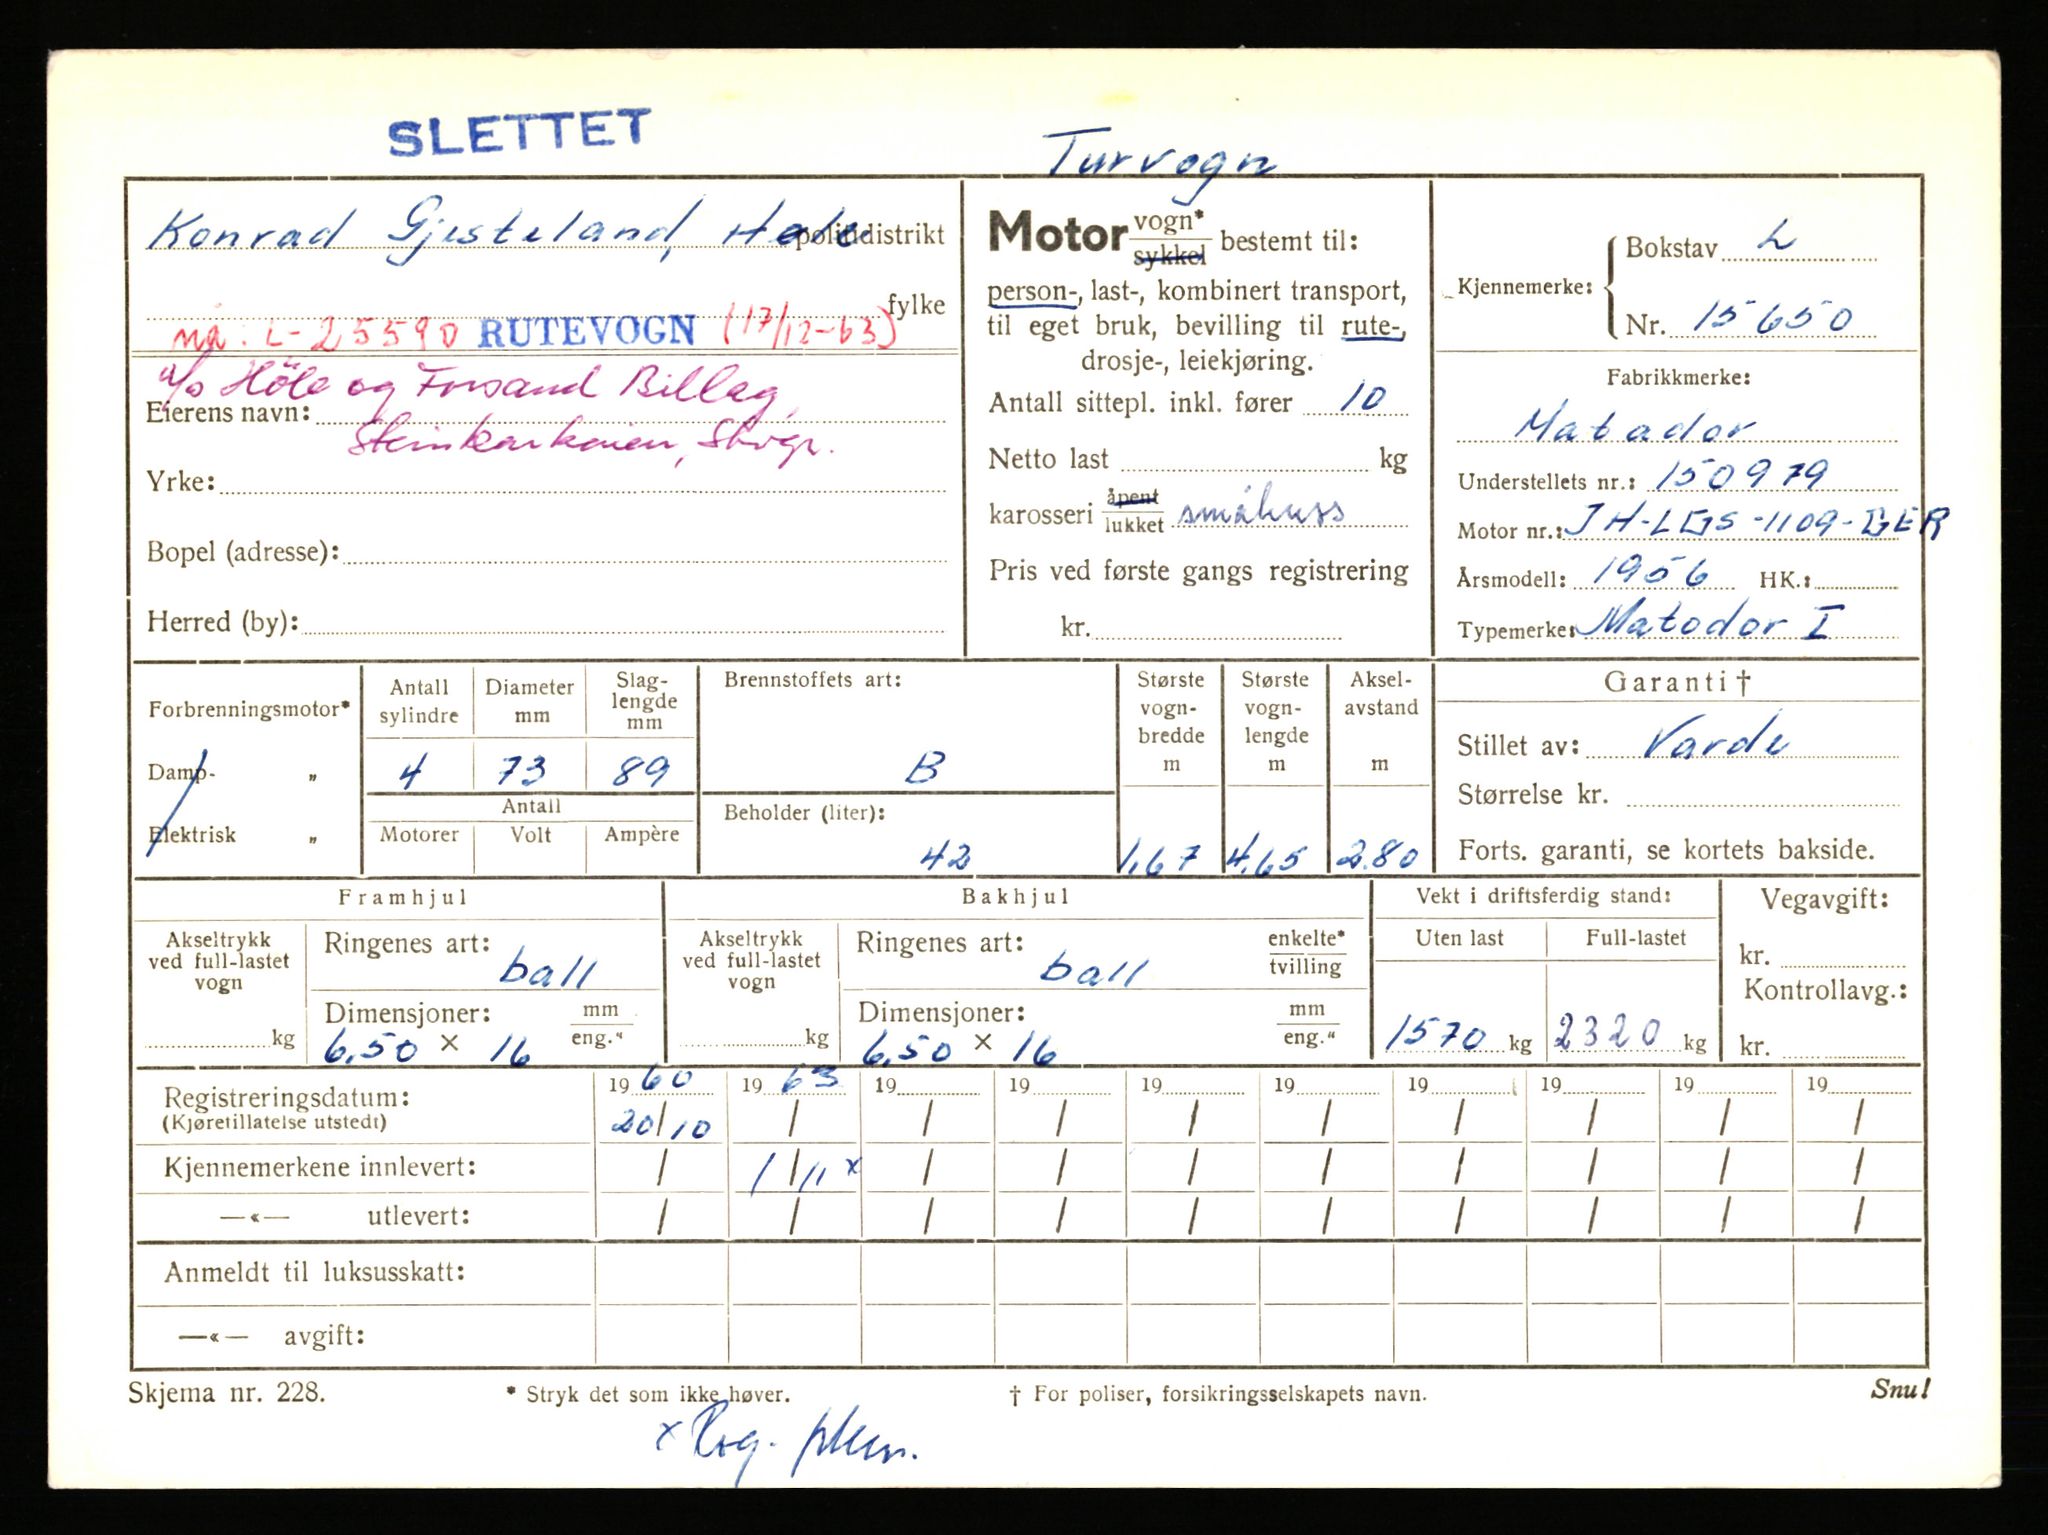 SLETTET
Turvogn
Konrad Gjesteland, Høle politidistrikt
fylke
nå: L-25590 RUTEVOGN (17/12-63)
a/s Höle og Forsand Billag,
Eierens navn:
Steinkarkaien, Stvgr.
Yrke:
Bopel (adresse):
Herred (by):
Motor vogn* / sykkel bestemt til:
person-, last-, kombinert transport,
til eget bruk, bevilling til rute-,
drosje-, leiekjøring.
Antall sittepl. inkl. fører 10
Netto last kg
karosseri åpent / lukket småbuss
Pris ved første gangs registrering
kr.
Kjennemerke: Bokstav L
Nr. 15650
Fabrikkmerke:
Matador
Understellets nr.: 150979
Motor nr.: JH-LGS-1109-GER
Årsmodell: 1956 HK.:
Typemerke: Matodor I
Forbrenningsmotor*
Damp- „
Elektrisk „
Antall sylindre Diameter mm Slag-lengde mm
4 73 89
Antall
Motorer Volt Ampère
Brennstoffets art:
B
Beholder (liter):
42
Største vogn-bredde m Største vogn-lengde m Aksel-avstand m
1,67 4,65 2.80
Garanti †
Stillet av: Varde
Størrelse kr.
Forts. garanti, se kortets bakside.
Framhjul
Akseltrykk ved full-lastet vogn
kg
Ringenes art:
ball
Dimensjoner: mm / eng.“
6,50 × 16
Bakhjul
Akseltrykk ved full-lastet vogn
kg
Ringenes art: enkelte* / tvilling
ball
Dimensjoner: mm / eng.“
6,50 × 16
Vekt i driftsferdig stand:
Uten last Full-lastet
1570 kg 2320 kg
Vegavgift:
kr.
Kontrollavg.:
kr.
19 60 19 63 19 19 19 19 19 19 19 19
Registreringsdatum:
(Kjøretillatelse utstedt)
20/10 / / / / / / / / /
Kjennemerkene innlevert: / 1/11 x / / / / / / / /
—«— utlevert: / / / / / / / / / /
Anmeldt til luksusskatt:
—«— avgift:
Skjema nr. 228. * Stryk det som ikke høver. † For poliser, forsikringsselskapets navn. Snu!
x Reg.